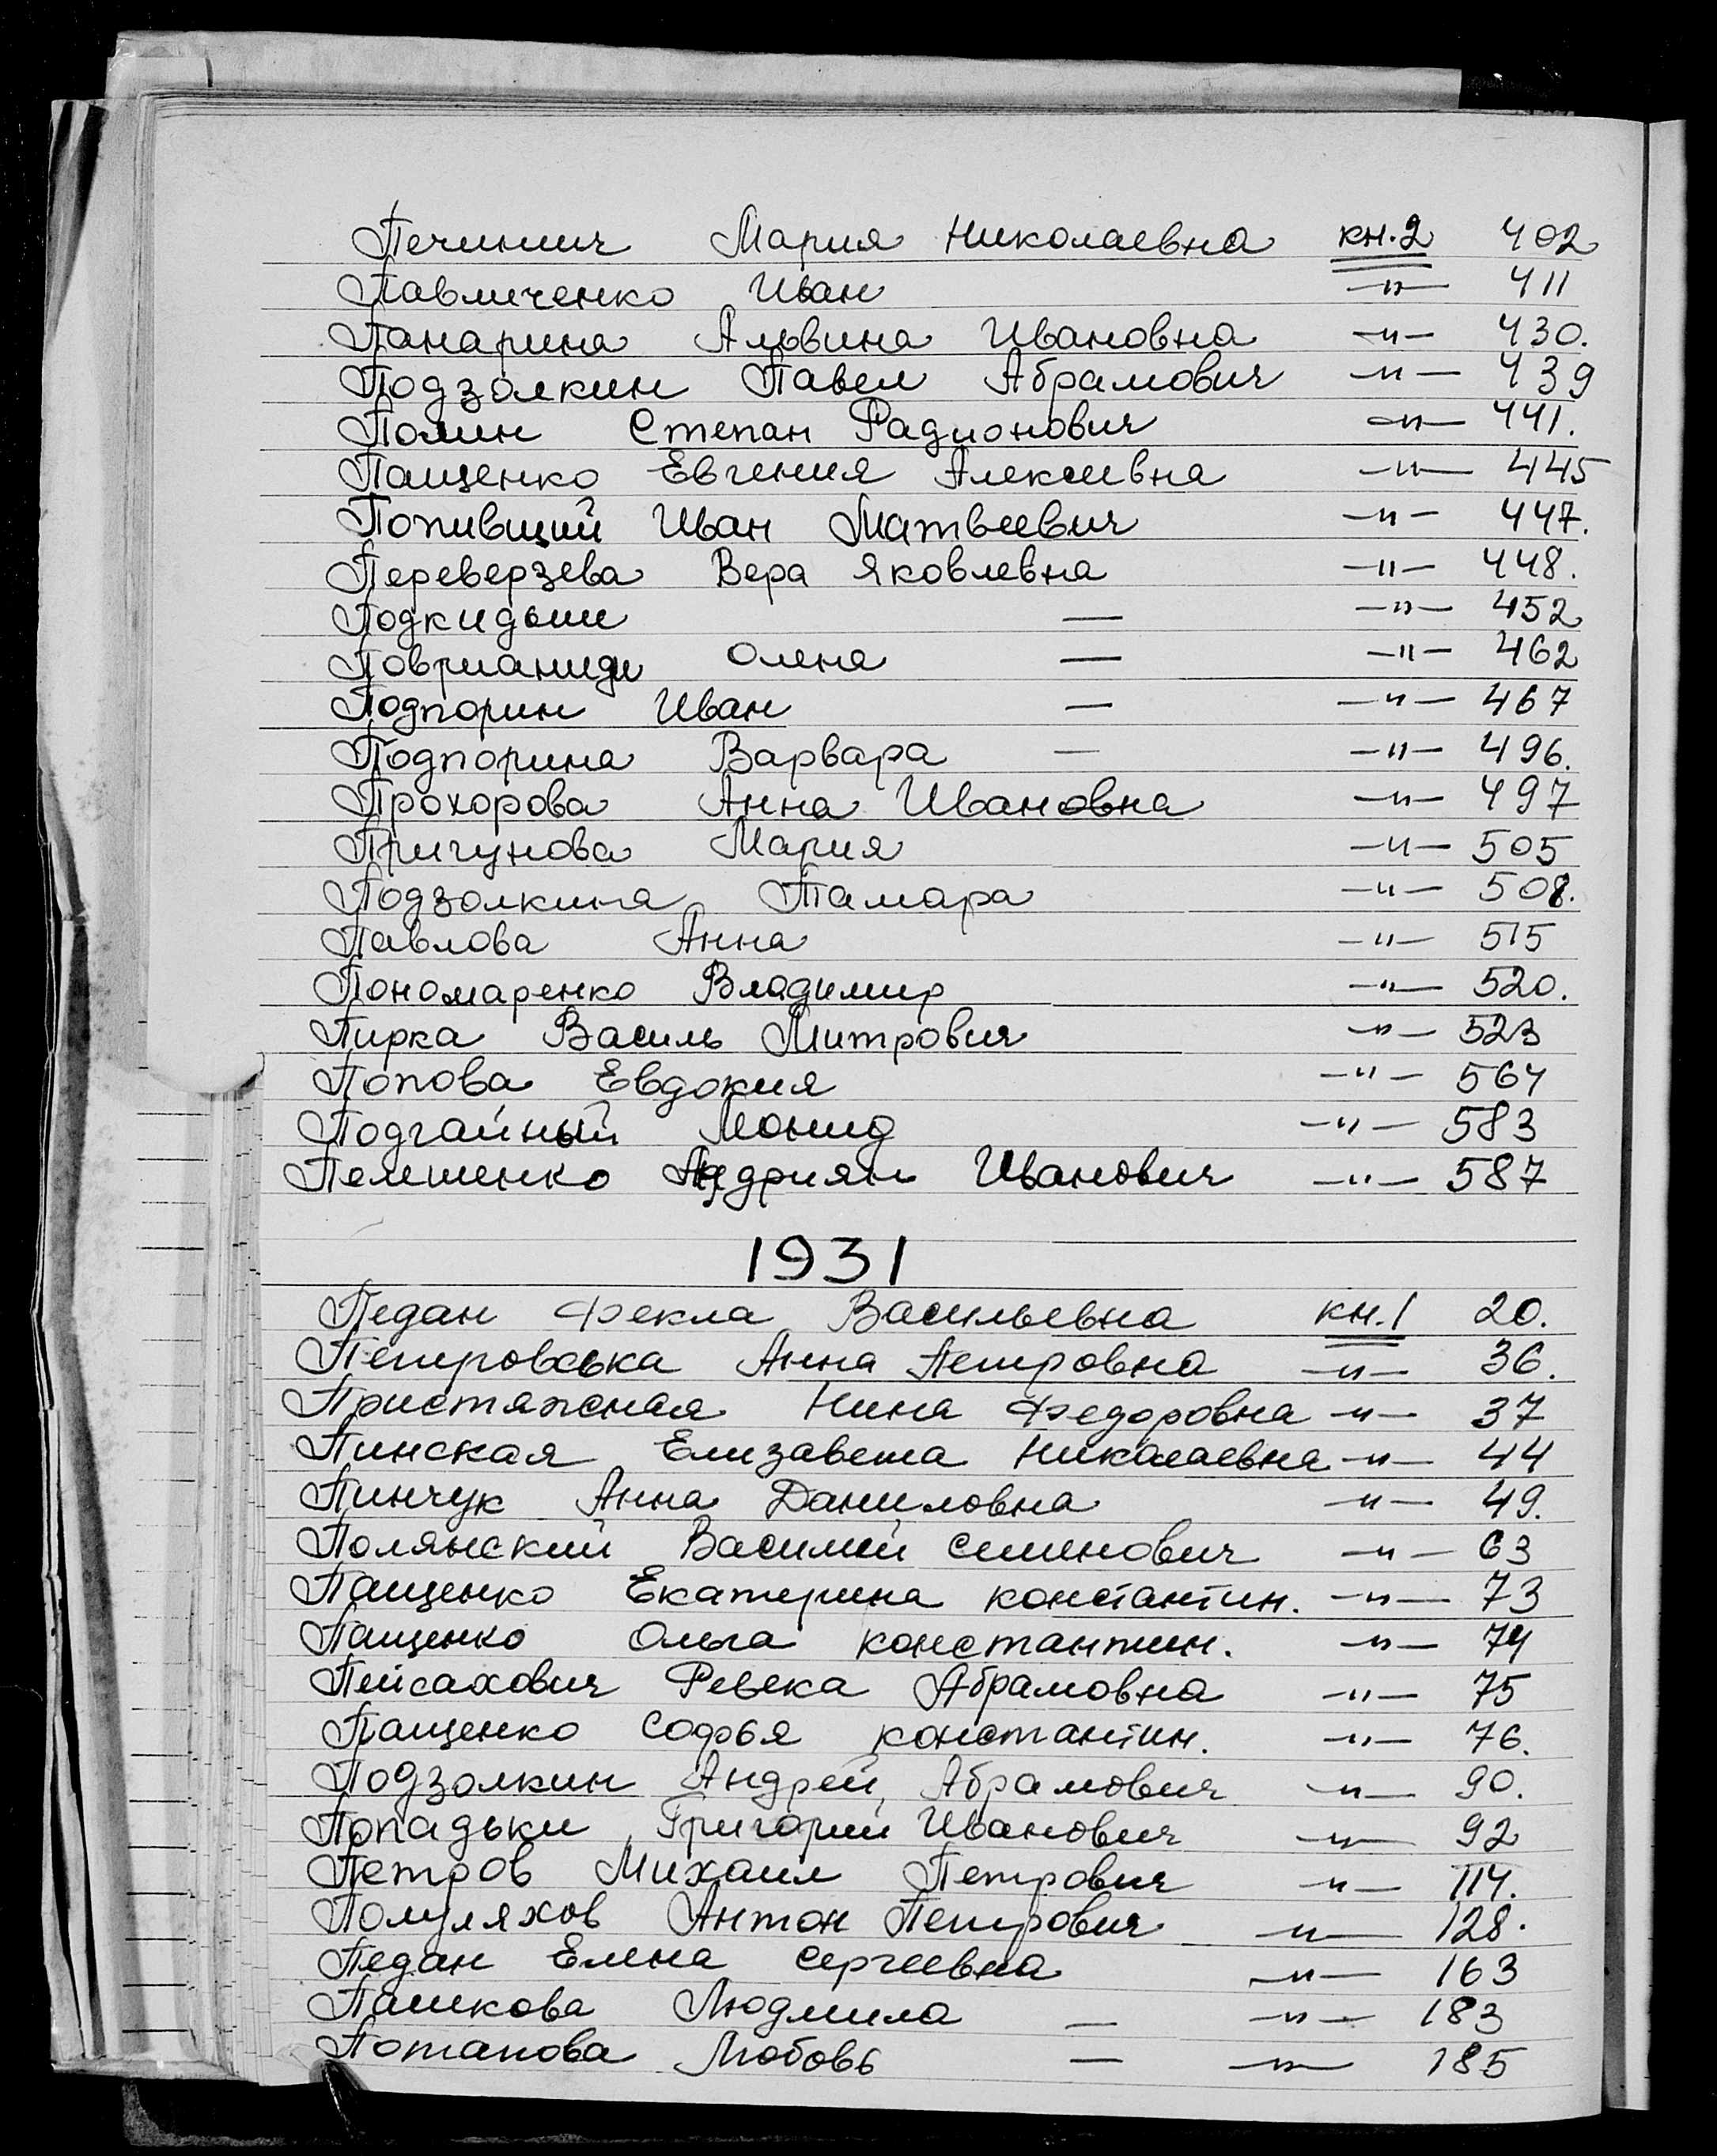 Печинич Мария Николаевна кн.2 402
Павличенко Иван —"— 411
Панарина Альвина Ивановна —"— 430.
Подзолкин Павел Абрамович —"— 439
Полин Степан Радионович —"— 441.
Пащенко Евгения Алексеевна —"— 445
Попивщий Иван Матвеевич —"— 447.
Переверзева Вера Яковлевна —"— 448.
Подкидыш — —"— 452
Олена — —"— 462
Подпорин Иван — —"— 467
Подпорина Варвара — —"— 496.
Прохорова Анна Ивановна —"— 497
Пригунова Мария —"— 505
Подзолкина Тамара —"— 508.
Павлова Анна —"— 515
Пономаренко Владимир —"— 520.
Пирка Василь Митрович —"— 523
Попова Евдокия —"— 564
Подгайный Леонид —"— 583
Пелешенко Андриян Иванович —"— 587
1931
Педан Фекла Васильевна кн.1 20.
Петровська Анна Петровна —"— 36.
Пристяжная Нина Федоровна —"— 37
Пинская Елизавета Николаевна —"— 44
Пинчук Анна Даниловна —"— 49.
Полянский Василий Семенович —"— 63
Пащенко Екатерина Константин. —"— 73
Пащенко Ольга Константин. —"— 74
Пейсахович Ревека Абрамовна —"— 75
Пащенко Софья Константин. —"— 76.
Подзолкин Андрей Абрамович —"— 90.
Попадьки Григорий Иванович —"— 92
Петров Михаил Петрович —"— 114.
Полуляхов Антон Петрович —"— 128.
Педан Елена Сергеевна —"— 163
Пашкова Людмила — —"— 183
Потапова Любовь — —"— 185